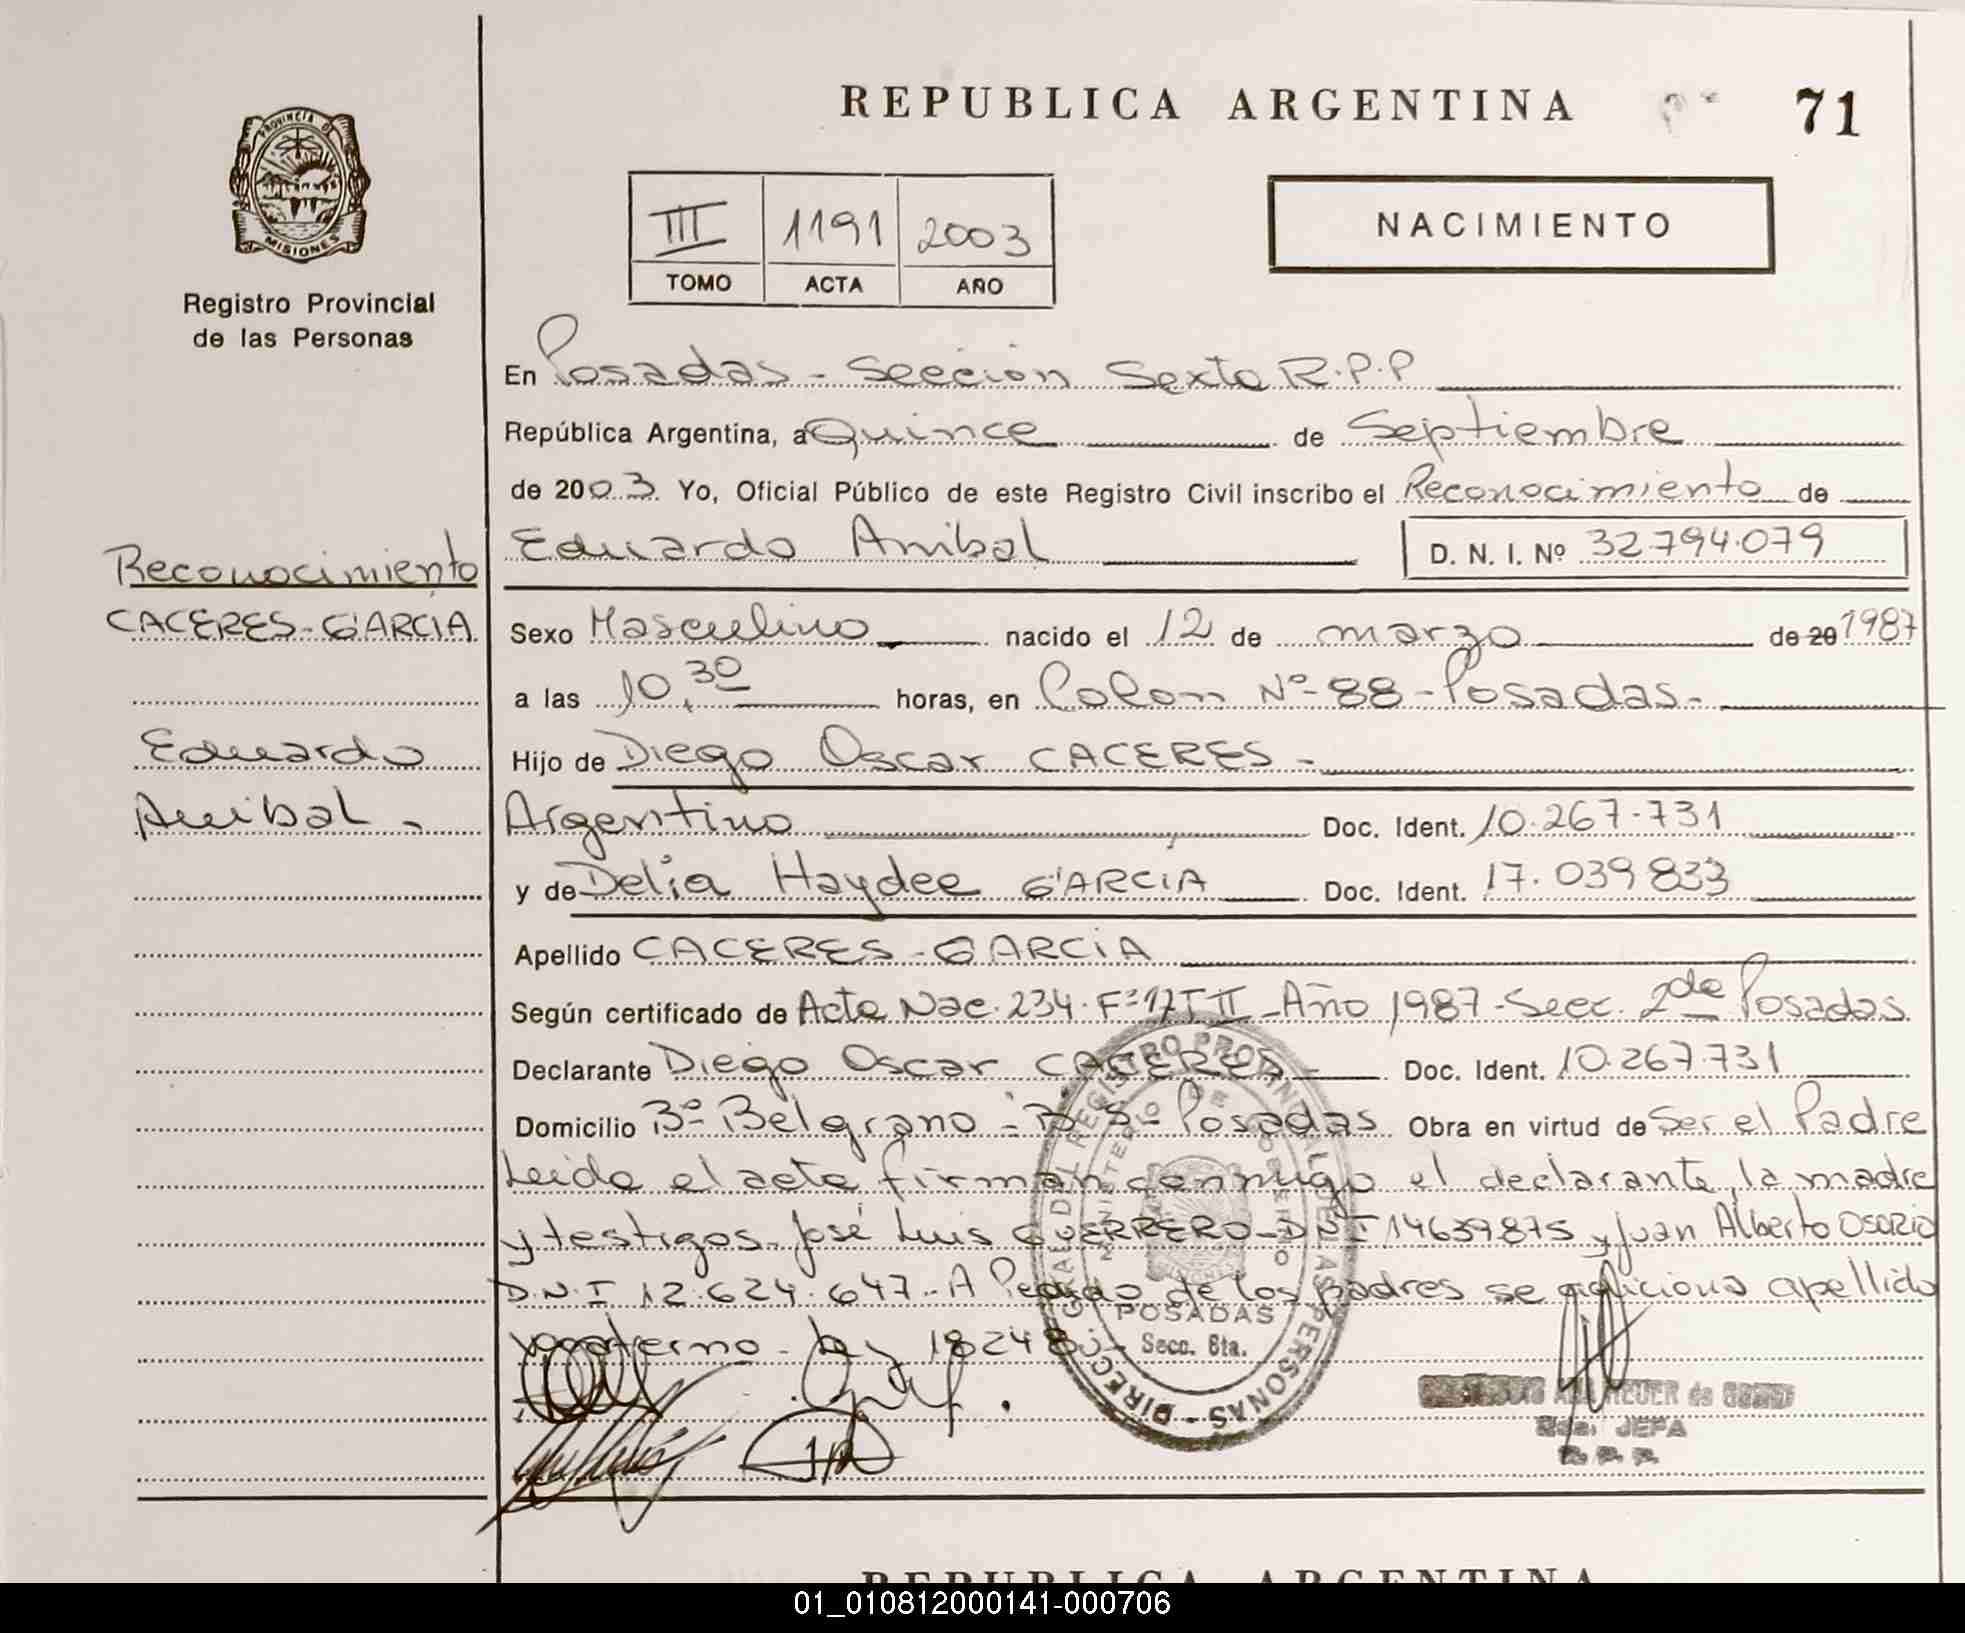 REPUBLICA ARGENTINA
71
PROVINCIA DE
MISIONES
Registro Provincial
de las Personas
III 1191 2003
TOMO ACTA AÑO
NACIMIENTO
En Posadas - Sección Sexta R.P.P
República Argentina, a Quince de Septiembre
de 2003. Yo, Oficial Público de este Registro Civil inscribo el Reconocimiento de
Eduardo Anibal D. N. I. Nº 32.794.079
Reconocimiento
CACERES-GARCIA
Eduardo
Anibal -
Sexo Masculino nacido el 12 de marzo de 20 1987
a las 10,30 horas, en Colon Nº 88 - Posadas -
Hijo de Diego Oscar CACERES -
Argentino Doc. Ident. 10.267.731
y de Delia Haydee GARCIA Doc. Ident. 17.039833
Apellido CACERES - GARCIA
Según certificado de Acta Nac. 234. Fº 17 T II - Año 1987 - Secc. 2da Posadas
Declarante Diego Oscar CACERES - Doc. Ident. 10.267.731
Domicilio Bº Belgrano - Posadas Obra en virtud de Ser el Padre
Leida el acta firman conmigo el declarante, la madre
y testigos José Luis GUERRERO - DNI 14639875 y Juan Alberto OSORIO
D.N.I 12.624.647 - A Pedido de los padres se adiciona apellido
materno - Ley 18248
POSADAS
Secc. 6ta.
JEFA
REPUBLICA ARGENTINA
01_010812000141-000706